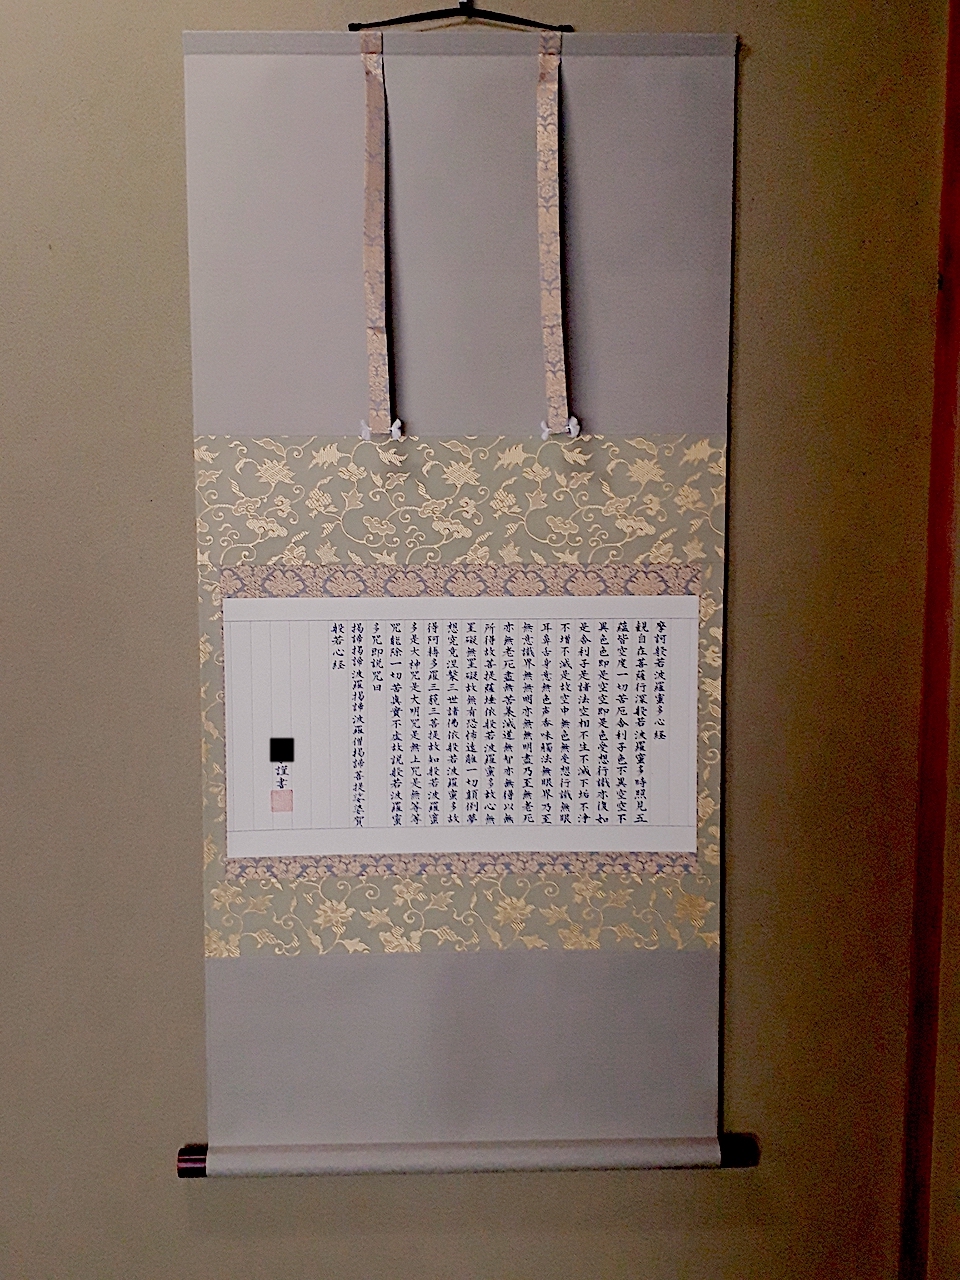 摩訶般若波羅蜜多心経
観自在菩薩行深般若波羅蜜多時照見五
蘊皆空度一切苦厄舎利子色不異空空不
異色色即是空空即是色受想行識亦復如
是舎利子是諸法空相不生不滅不垢不浄
不増不減是故空中無色無受想行識無眼
耳鼻舌身意無色声香味触法無眼界乃至
無意識界無無明亦無無明盡乃至無老死
亦無老死盡無苦集滅道無智亦無得以無
所得故菩提薩埵依般若波羅蜜多故心無
罣礙無罣礙故無有恐怖遠離一切顛倒夢
想究竟涅槃三世諸佛依般若波羅蜜多故
得阿耨多羅三藐三菩提故知般若波羅蜜
多是大神咒是大明咒是無上咒是無等等
咒能除一切苦真實不虚故説般若波羅蜜
多咒即説咒曰
揭諦揭諦波羅揭諦波羅僧揭諦菩提娑婆賀
般若心経
謹書